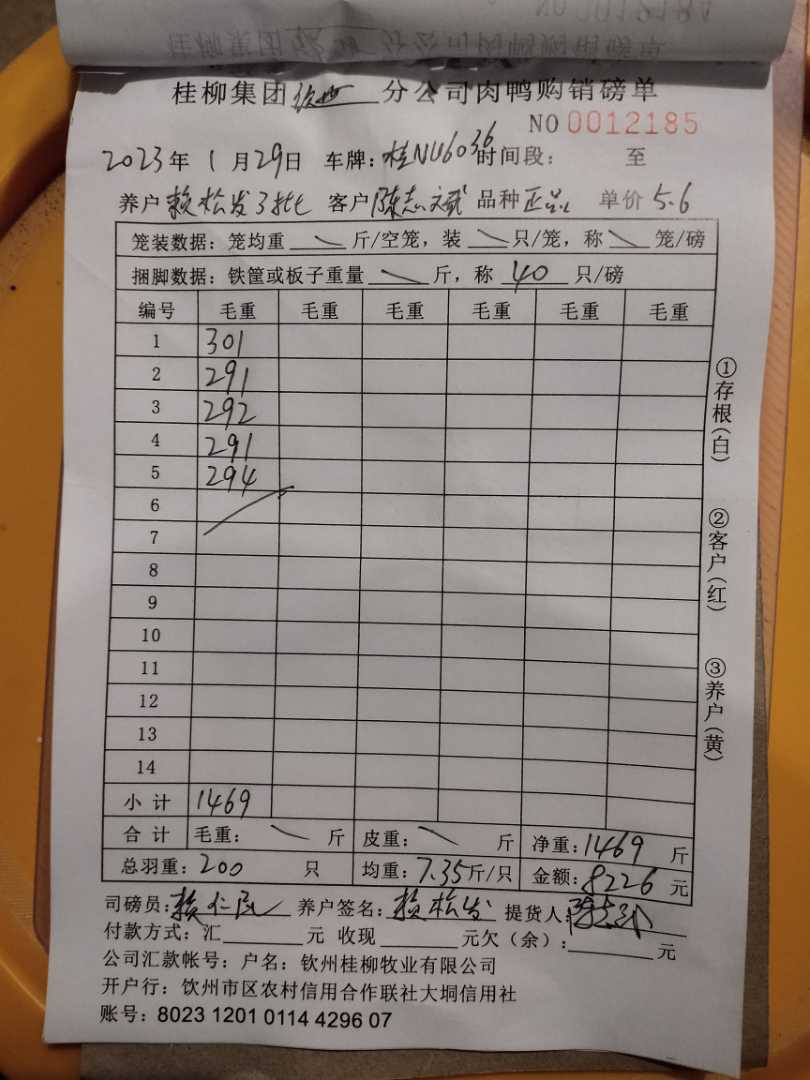 桂柳集团 分公司肉鸭购销磅单
NO 0012185
2023年 1 月 29日 车牌：桂NU6036 时间段： 至
养户 赖松发3批 客户 陈志斌 品种 正品 单价 5.6
笼装数据：笼均重 \ 斤/空笼，装 \ 只/笼，称 \ 笼/磅
捆脚数据：铁筐或板子重量 \ 斤，称 40 只/磅
编号 毛重 毛重 毛重 毛重 毛重 毛重
1 301
2 291
3 292
4 291
5 294
6
7
8
9
10
11
12
13
14
小 计 1469
合 计 毛重： \ 斤 皮重： \ 斤 净重：1469 斤
总羽重：200 只 均重：7.35斤/只 金额：8226 元
司磅员：赖仁民 养户签名：赖松发 提货人：
付款方式：汇 元 收现 元欠（余）： 元
公司汇款帐号：户名：钦州桂柳牧业有限公司
开户行：钦州市区农村信用合作联社大垌信用社
账号：8023 1201 0114 4296 07
①存根（白）
②客户（红）
③养户（黄）